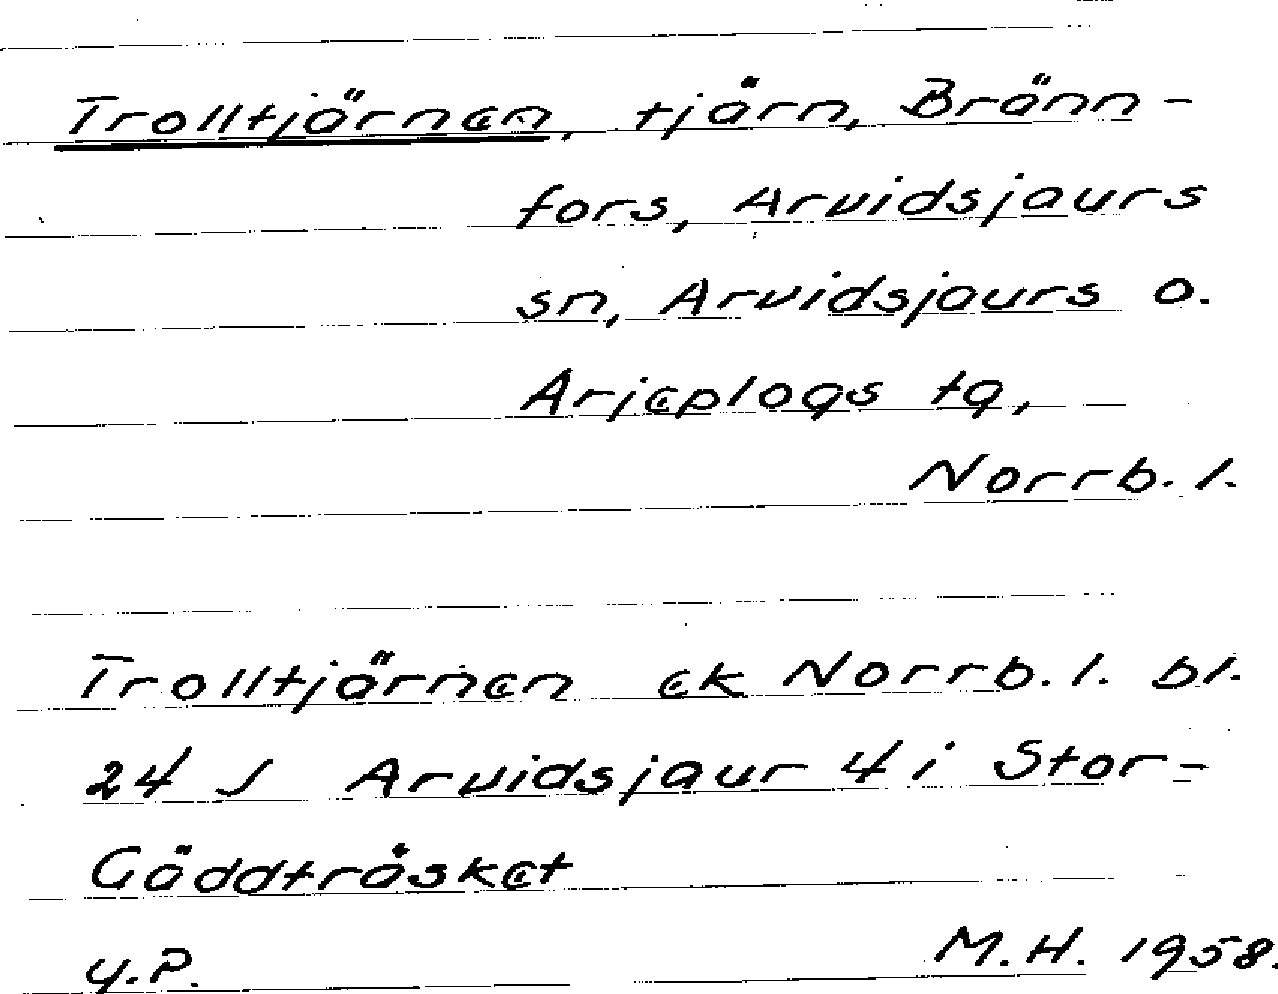 Trolltjärnen, tjärn, Bränn-
fors, Arvidsjaurs
sn, Arvidsjaurs o.
Arjeplogs tg,
Norrb. l.
Trolltjärnen ek Norrb. l. bl.
24 J Arvidsjaur 4 i Stor-
Gäddträsket
y.P. M.H. 1958.